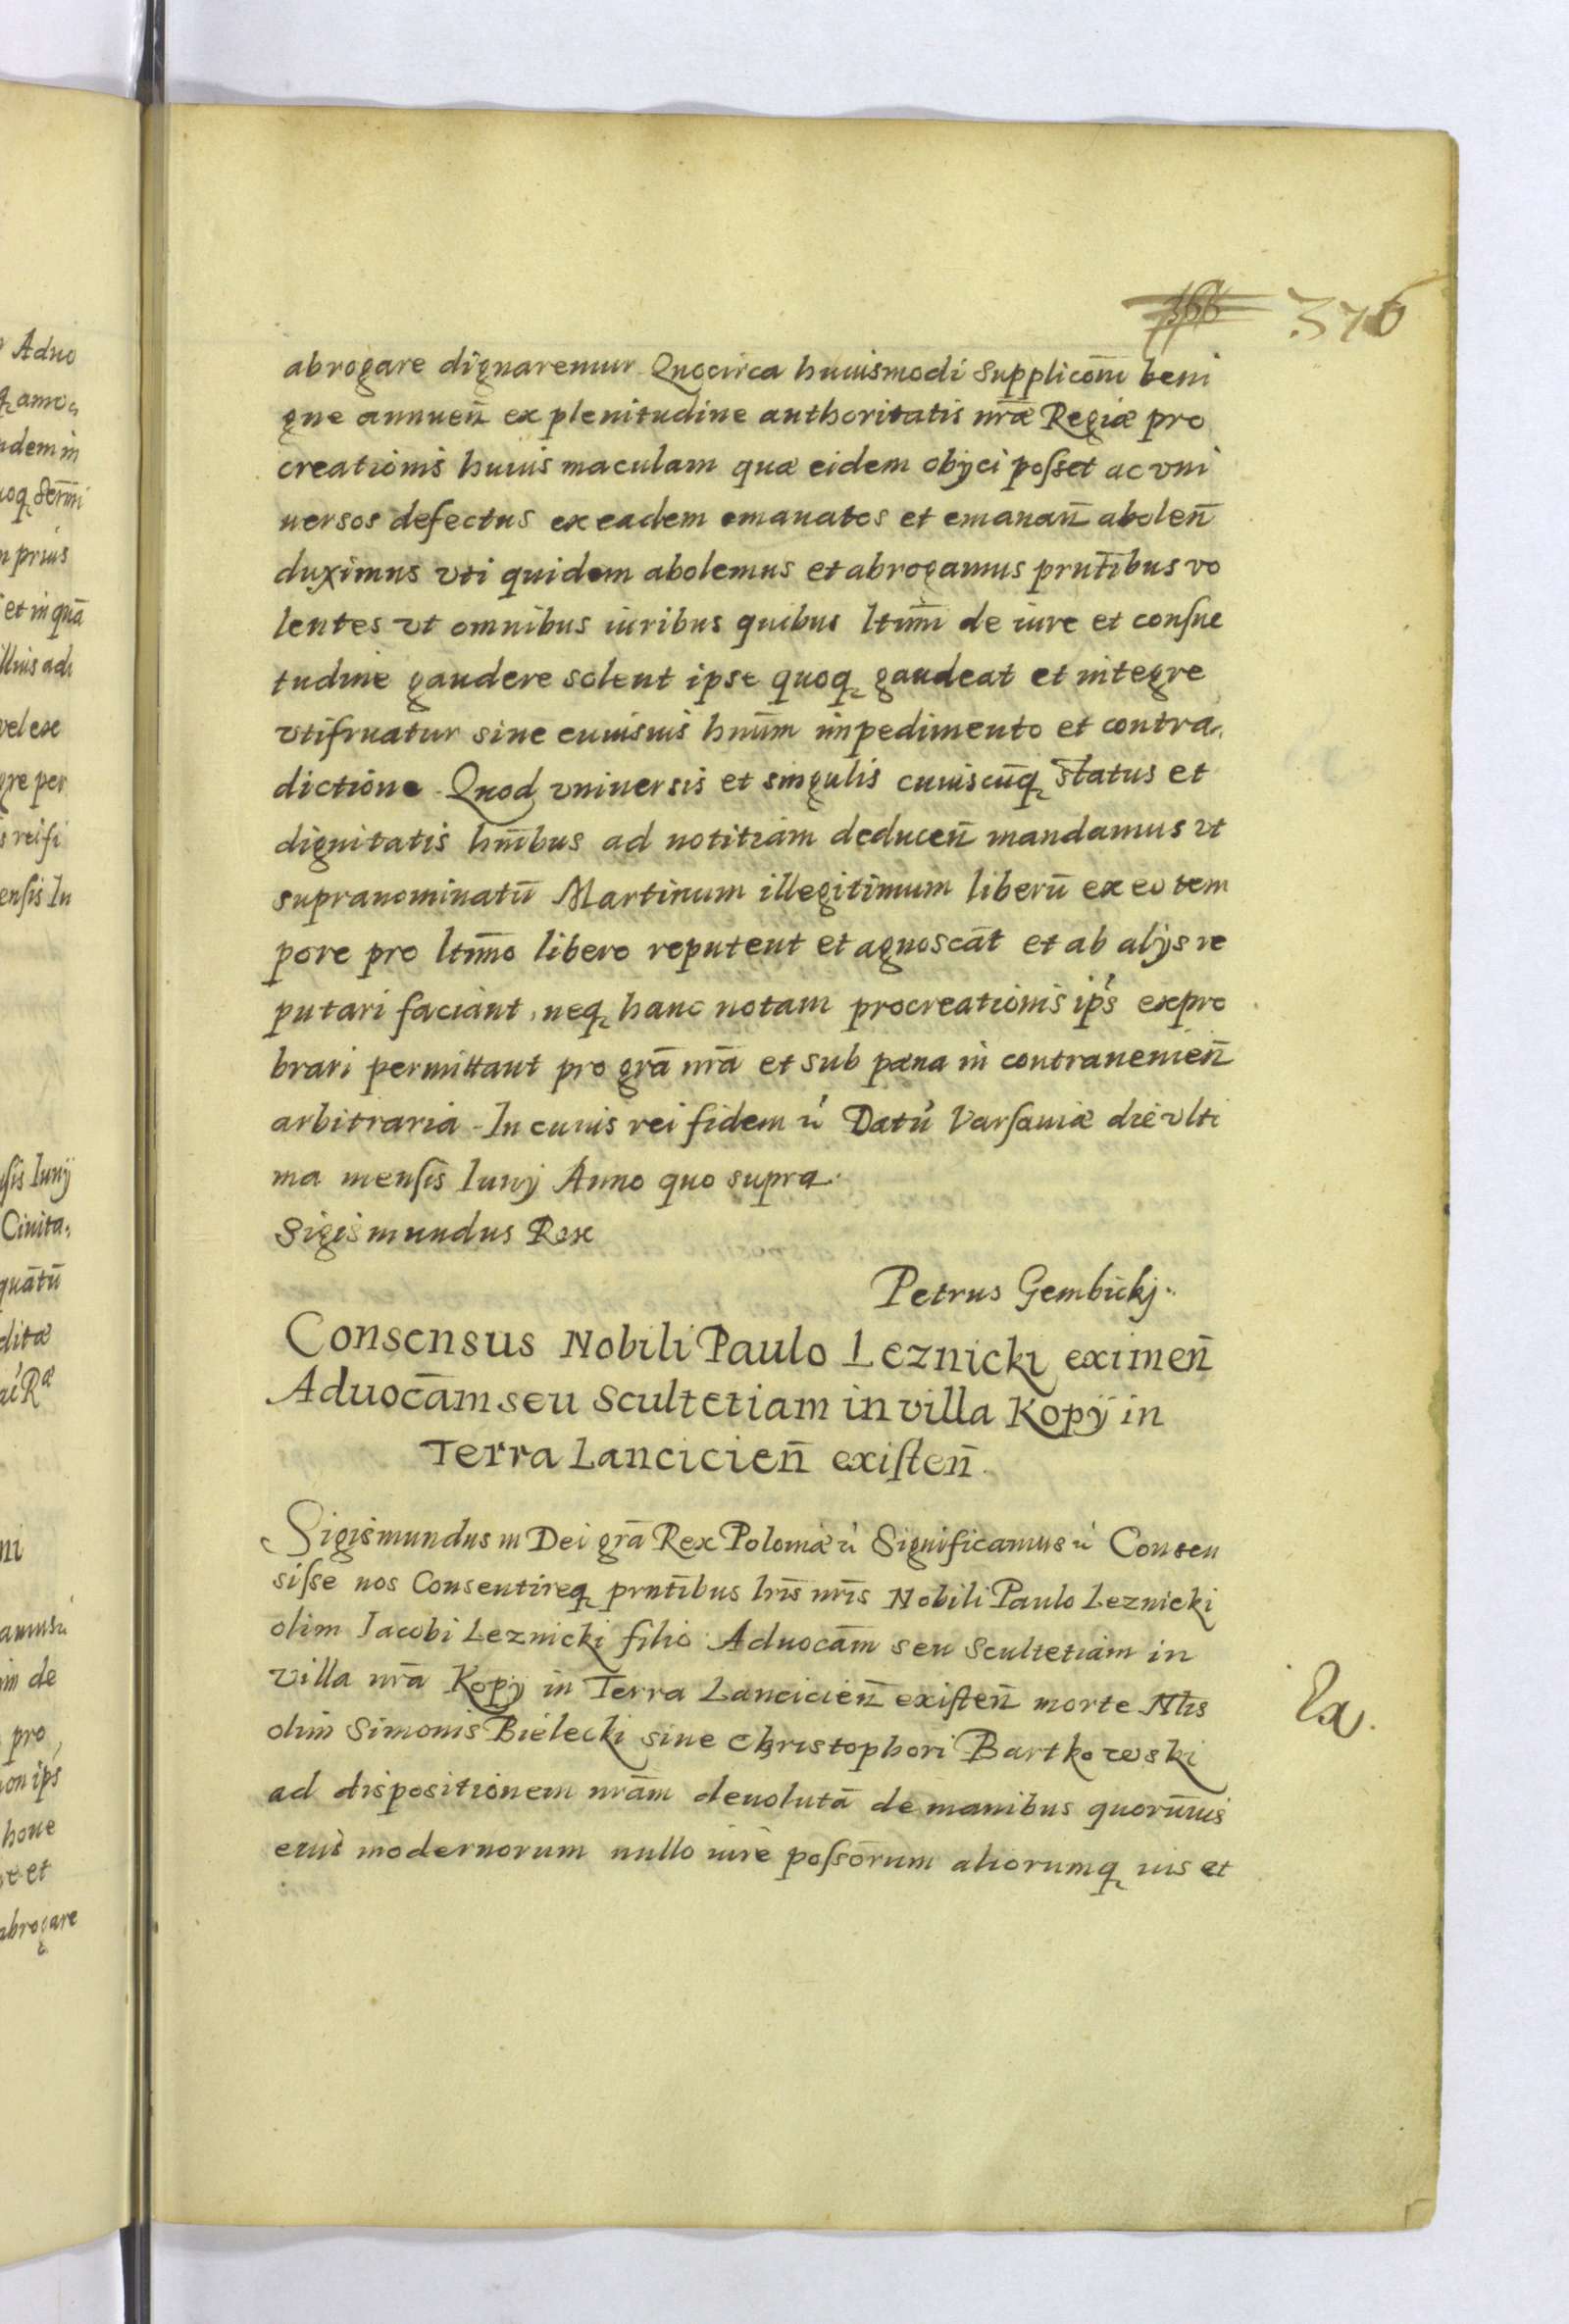 376
abrogare dignaremur Quocirca huiusmodi supplicōni beni
gne annueñ ex plenitudine authoritatis nrǣ Regiæ pro
creationis huius maculam quæ eidem obijci posset ac vni
uersos defectus ex eadem emanatos et emanañ aboleñ
duximus vti quidem abolemus et abrogamus prntībus vo
lentes vt omnibus iuribus quibus ltīmi de iure et consue
tudine gaudere solent ipse quoq gaudeat et integre
vtifruatur sine cuiusuis hnūm impedimento et contra,
dictione. Quod vniuersis et singulis cuiuscūq status et
dignitatis hnībus ad notitiam deduceñ mandamus vt
supranominatū Martinum illegitimum liberū ex eo tem
pore pro ltīmo libero reputent et agnoscāt et ab alijs re
putari faciant, neq hanc notam procreationis ip's expro
brari permittant pro grā nrā et sub pæna in contrauenieñ
arbitraria. In cuius rei fidem rć Datū Varsauiæ die vlti
ma mensis Iunij Anno quo supra.
Sigismundus Rex
Petrus Gembickj.
Consensus Nobili Paulo Leznicki eximeñ
Aduocām seu scultetiam in villa Kopÿ in
Terra Lancicieñ existeñ.
Sigismundus III Dei grā Rex Poloniæ rć Significamus rć Consen
sisse nos Consentireq prntībus lrīs nrīs Nobili Paulo Leznicki
olim Iacobi Leznicki filio Aduocām seu Scultetiam in
villa nrā Kopÿ in Terra Lancicieñ existeñ morte Nlīs
olim Simonis Bielecki siue Christophori Bartkowski
ad dispositionem nrām deuolutā de manibus quorūuis
eius modernorum nullo iure possōrum aliorumq ius et